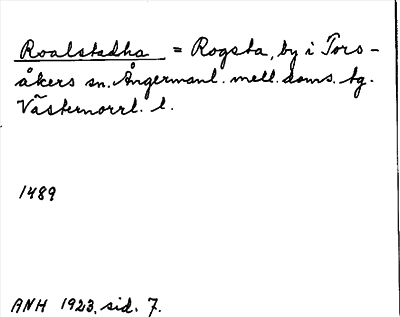 Roalstadha = Rogsta, by i Tors-
åkers sn. Ångermanl. mell. doms. tg.
Västernorrl. l.
1489
ANH 1923, sid. 7.